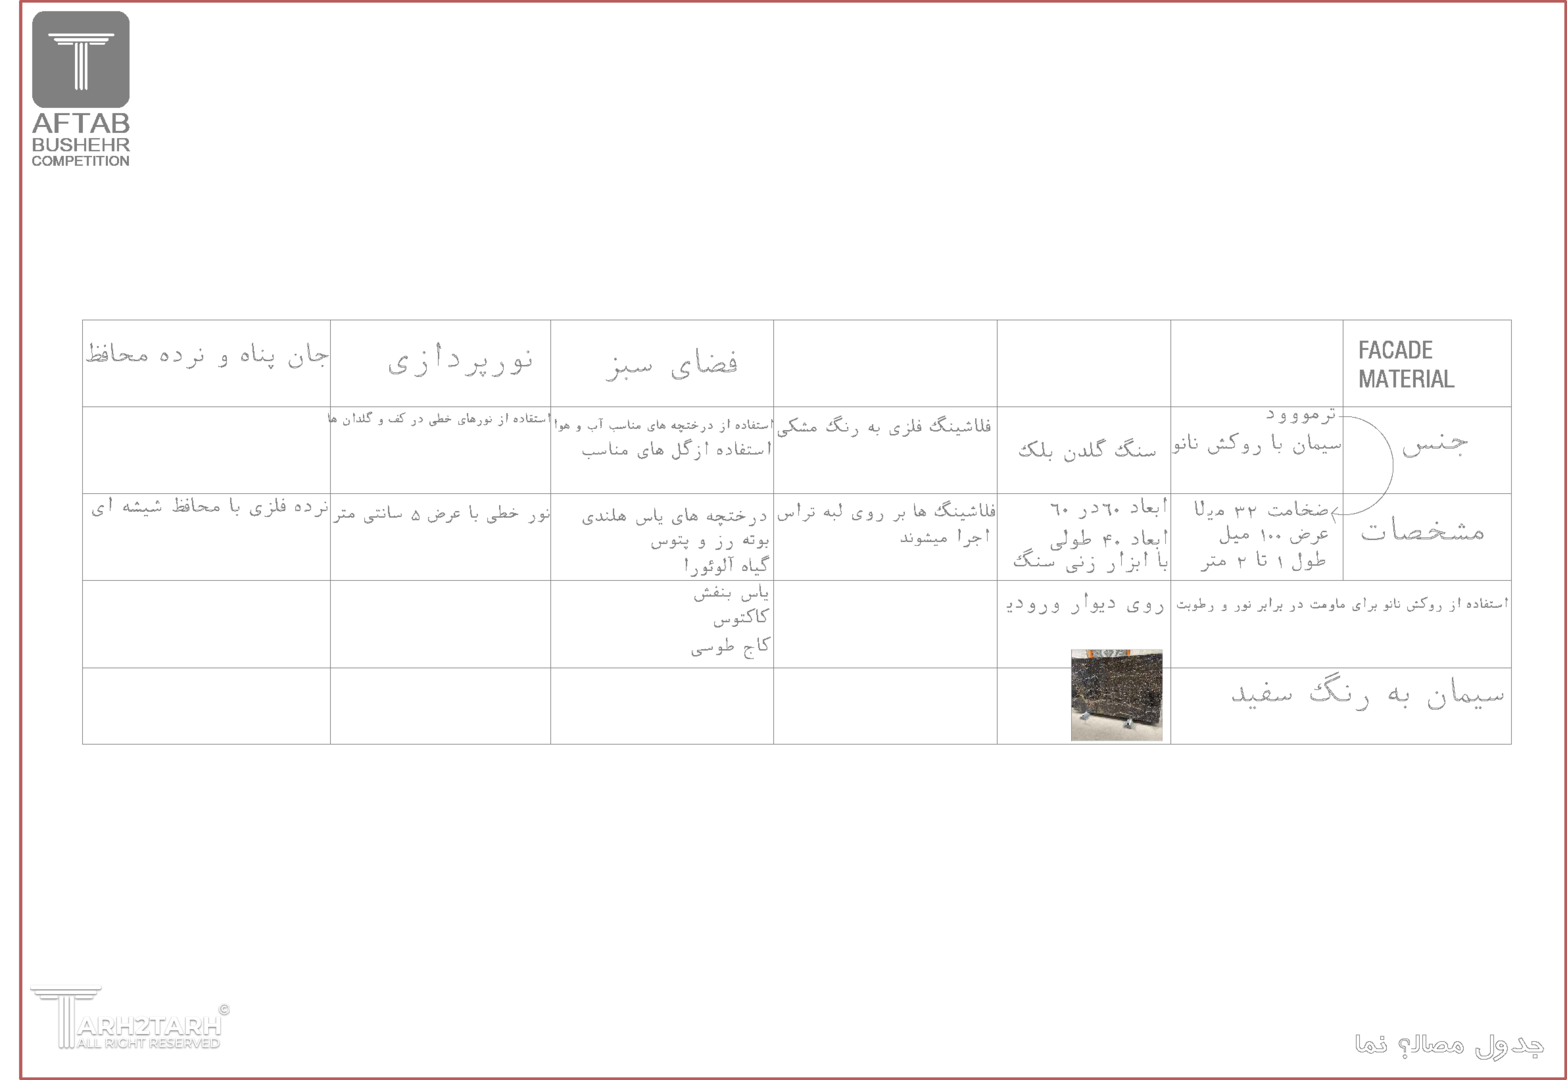 AFTAB
BUSHEHR
COMPETITION
FACADE
MATERIAL
فضای سبز
نورپردازی
جان پناه و نرده محافظ
جنس
ترمووود
سیمان با روکش نانو
سنگ گلدن بلک
فلاشینگ فلزی به رنگ مشکی
استفاده از درختچه های مناسب آب و هوا
استفاده ازگل های مناسب
استفاده از نورهای خطی در کف و گلدان ها
مشخصات
ضخامت ۳۲ میلا
عرض ۱۰۰ میل
طول ۱ تا ۲ متر
ابعاد ۶۰در ۶۰
ابعاد ۴۰ طولی
با ابزار زنی سنگ
فلاشینگ ها بر روی لبه تراس
اجرا میشوند
درختچه های یاس هلندی
بوته رز و پتوس
گیاه آلوئورا
نور خطی با عرض ۵ سانتی متر
نرده فلزی با محافظ شیشه ای
استفاده از روکش نانو برای ماومت در برابر نور و رطوبت
روی دیوار ورودی
یاس بنفش
کاکتوس
کاج طوسی
سیمان به رنگ سفید
TARH2TARH©
ALL RIGHT RESERVED
جدول مصال؟ نما